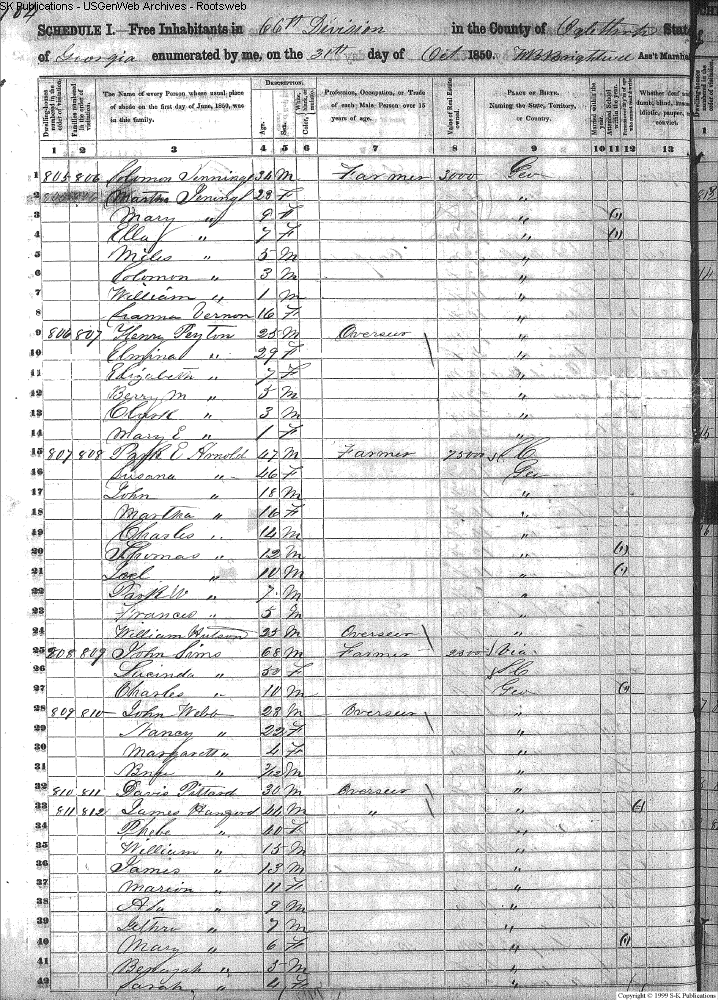 SK Publications - USGenWeb Archives - Rootsweb
SCHEDULE I.—Free Inhabitants in 66th Division in the County of Oglethorpe State
of Georgia enumerated by me, on the 31th day of Oct 1850. Ass't Marshal
Dwelling-houses numbered in the order of visitation.
Families numbered in the order of visitation.
The Name of every Person whose usual place of abode on the first day of June, 1850, was in this family.
DESCRIPTION.
Age.
Sex.
White, black, or mulatto.
Color,
Profession, Occupation, or Trade of each Male Person over 15 years of age.
Value of Real Estate owned.
PLACE OF BIRTH. Naming the State, Territory, or Country.
Married within the year.
Attended School within the year.
Whether deaf and dumb, blind, insane, idiotic, pauper, or convict.
1 2 3 4 5 6 7 8 9 10 11 12 13
1 805 806 Solomon Jennings 34 M Farmer 3000 Geo
2 Martha 28 F "
3 Mary " 9 F " (1)
4 Ella " 7 F " (1)
5 Miles " 5 M "
6 Solomon " 3 M "
7 William " 1 M "
8 Vernon 16 F "
9 806 807 Henry Peyton 25 M Overseer "
10 Elmina " 29 F "
11 Elizabeth " 7 F "
12 Berry M " 5 M "
13 " 3 M "
14 Mary E " 1 F "
15 807 808 Park E Arnold 47 M Farmer 7500 SC
16 Susana " 46 F Geo
17 John " 18 M "
18 Martha " 16 F "
19 Charles " 14 M "
20 Thomas " 12 M " (1)
21 Joel " 10 M " (1)
22 Park W " 7 M "
23 Frances " 5 M "
24 William Hutson 25 M Overseer "
25 808 809 John Sims 68 M Farmer 2500 Via
26 Lucinda " 50 F SC
27 Charles " 10 M Geo (1)
28 809 810 John Webb 28 M Overseer "
29 Nancy " 22 F "
30 Margarett " 4 F "
31 " M "
32 810 811 Davis Pittard 30 M Overseer "
33 811 812 James 44 M " "
34 Phebe " 40 F "
35 William " 15 M "
36 James " 13 M "
37 Marion " 11 F "
38 " 9 M "
39 " 7 M "
40 Mary " 6 F " (1)
41 Benajah " 5 M "
42 Sarah " 4 F "
Copyright © 1999 S-K Publications